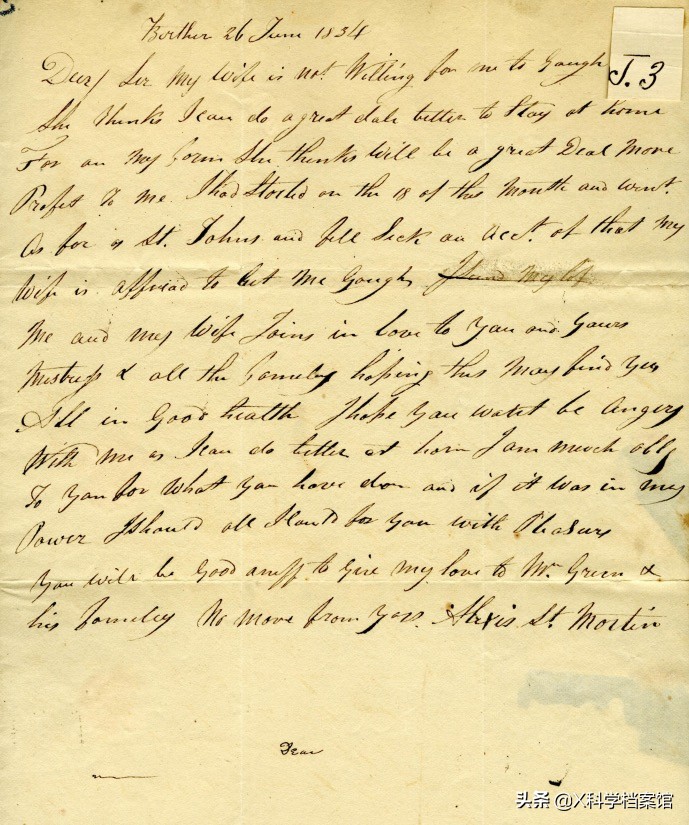 Berthier 26 June 1834
J.3
Dear Sir My Wife is not Willing for me to Gough
She thinks I can do a great dale better to Stay at home
For on My Form She thinks Will be a great Deal More
Profit to me I had Started on the 18 of this Month and went
As for as St. Johns and fell Sick on Acct. of that My
Wife is affraid to Let Me Gough
Me and my Wife Joins in Love to You and Yours
Mistress & all the Fameley hoping this May find You
All in Good health I hope You watnt be Angery
With me as I can do better at hom I am much oblg
To You for What You have don and if it was in my
Power I Should all I Could for You with Pleasure
You will be Good anuff to Give my love to Mr. Green &
his Fameley No more from Yors Alexis St. Martin
Dear
头条 @X科学档案馆